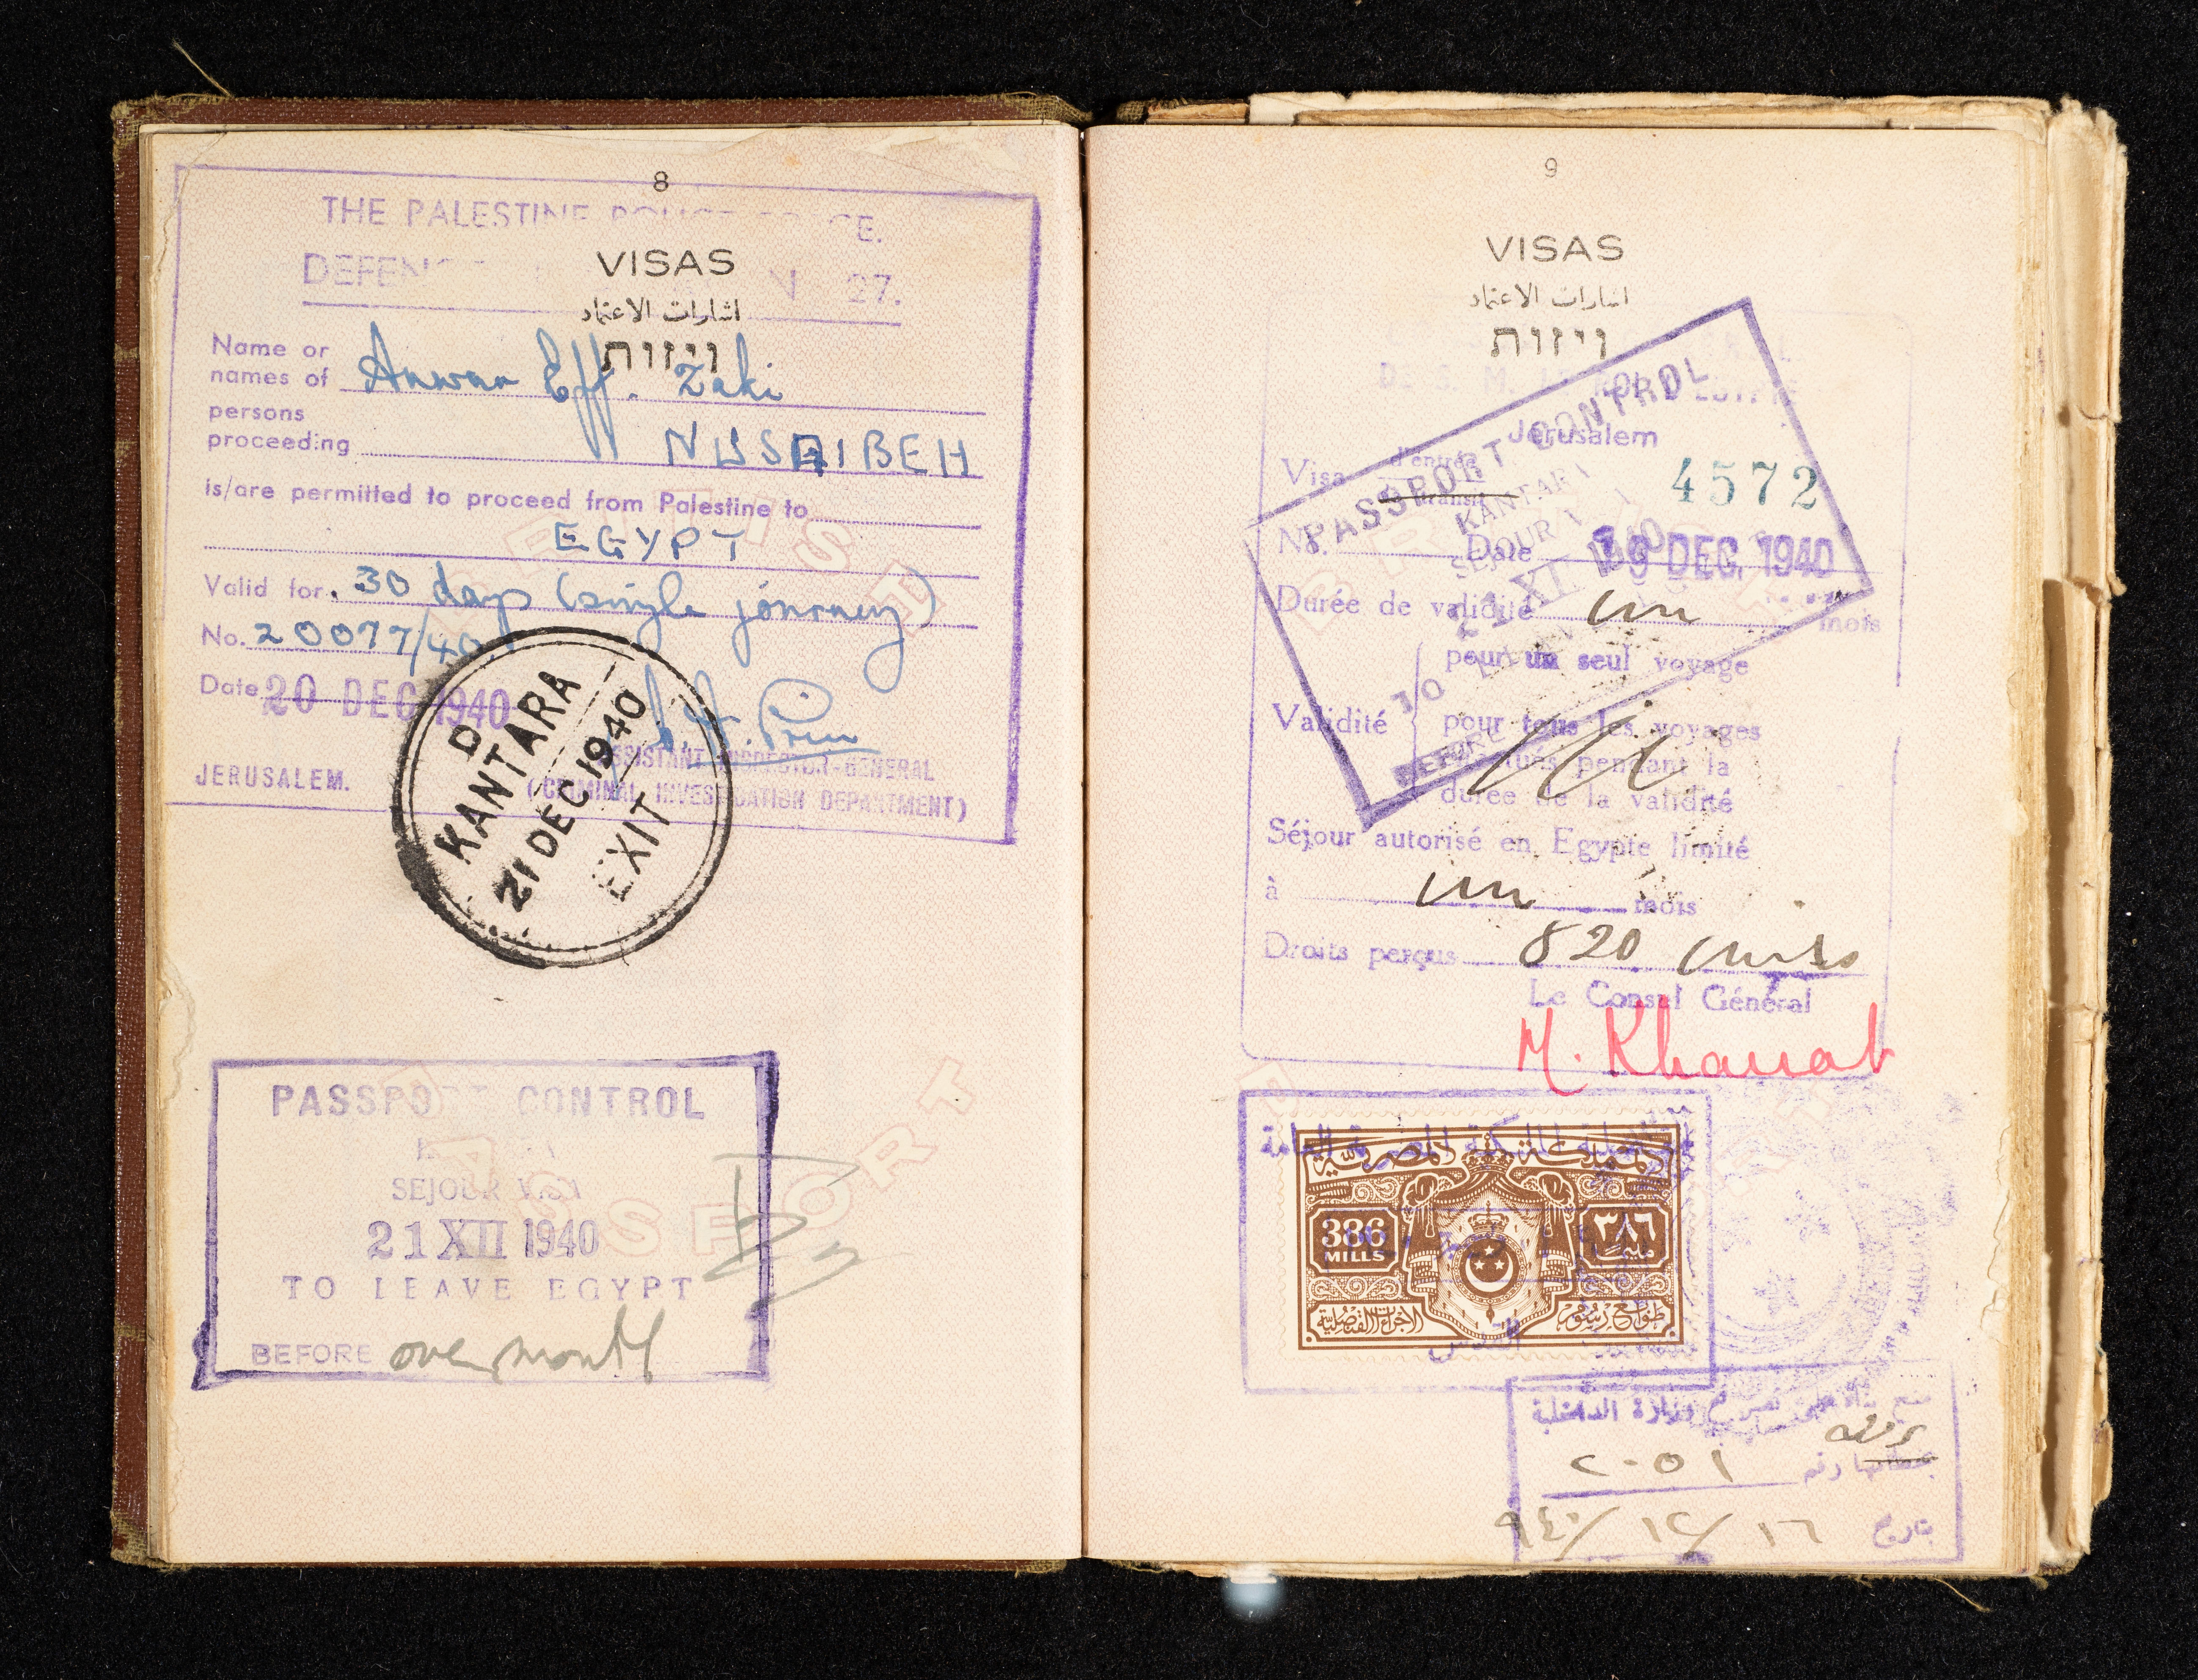 8
THE PALESTINE POLICE FORCE.
DEFENCE 27.
VISAS
اشارات الاعتماد
ויזות
Name or
names of Anwar Eff. Zaki
persons
proceeding NUSEIBEH
is/are permitted to proceed from Palestine to
EGYPT
Valid for 30 days (single journey)
No. 20077/40
Date 20 DEC 1940
ASSISTANT INSPECTOR-GENERAL
JERUSALEM. (CRIMINAL INVESTIGATION DEPARTMENT)
D
KANTARA
21 DEC 1940
EXIT
PASSPORT CONTROL
KANTARA
SEJOUR VISA
21 XII 1940
TO LEAVE EGYPT
BEFORE one month
BRITISH
PASSPORT
9
VISAS
اشارات الاعتماد
ויזות
Jerusalem
Visa d'entrée
transit
4572
No. Date 19 DEC. 1940
Durée de validité un mois
pour un seul voyage
Validité pour tous les voyages
effectués pendant la
durée de la validité
Séjour autorisé en Egypte limité
à un mois
Droits perçus 820 mills
Le Consul Général
PASSPORT CONTROL
KANTARA
SEJOUR
21 XII 1940
TO
BEFORE
القنصلية الملكية المصرية العامة
المملكة المصرية
386
MILLS
٣٨٦
مليم
طوابع رسوم
الإجراءات القنصلية
القدس
وزارة الداخلية
رقم ٢٠٥١
بتاريخ ١٦/١٢/٩٤٠